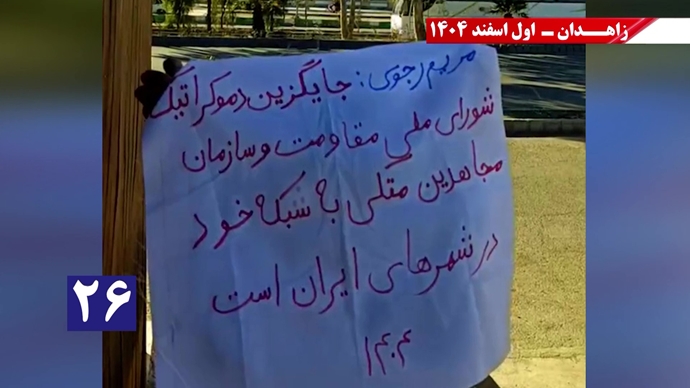 زاهدان - اول اسفند ۱۴۰۴
مریم رجوی: جایگزین دموکراتیک
شورای ملی مقاومت و سازمان
مجاهدین متکی به شبکه خود
در شهرهای ایران است
۲۶